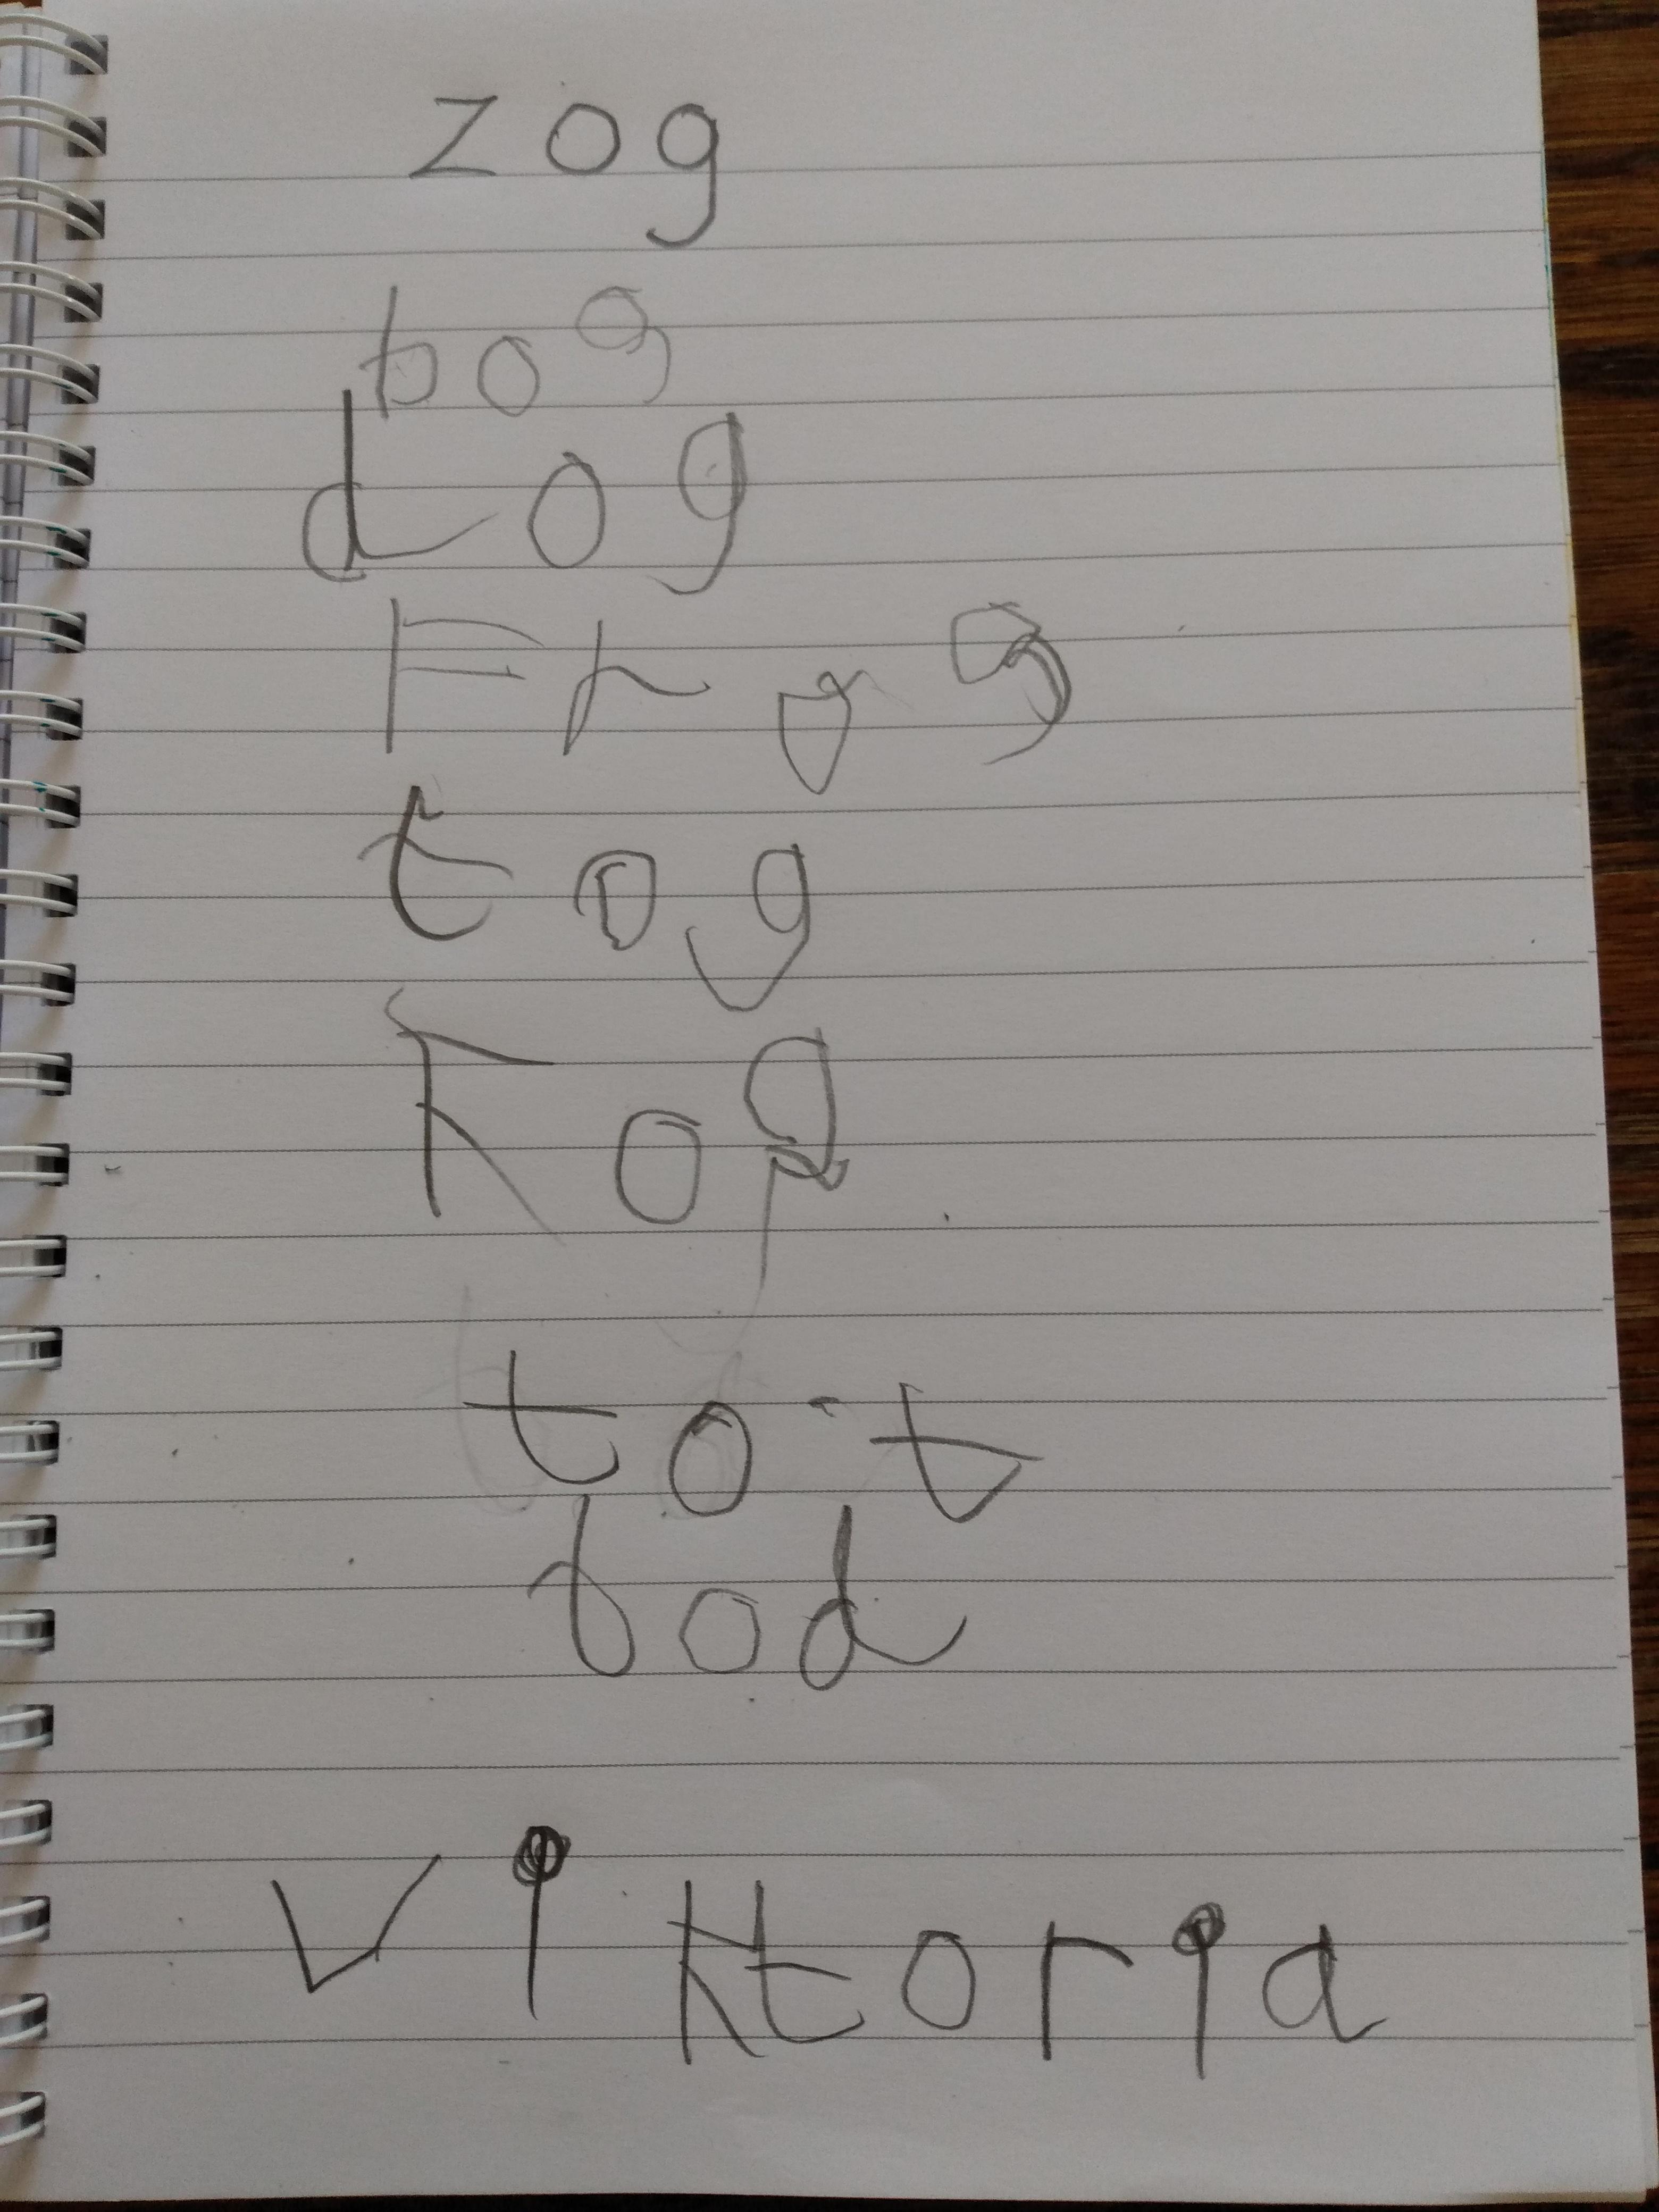 zog
bog
dog
Frog
tog
Fog
tot
tod
viktoria